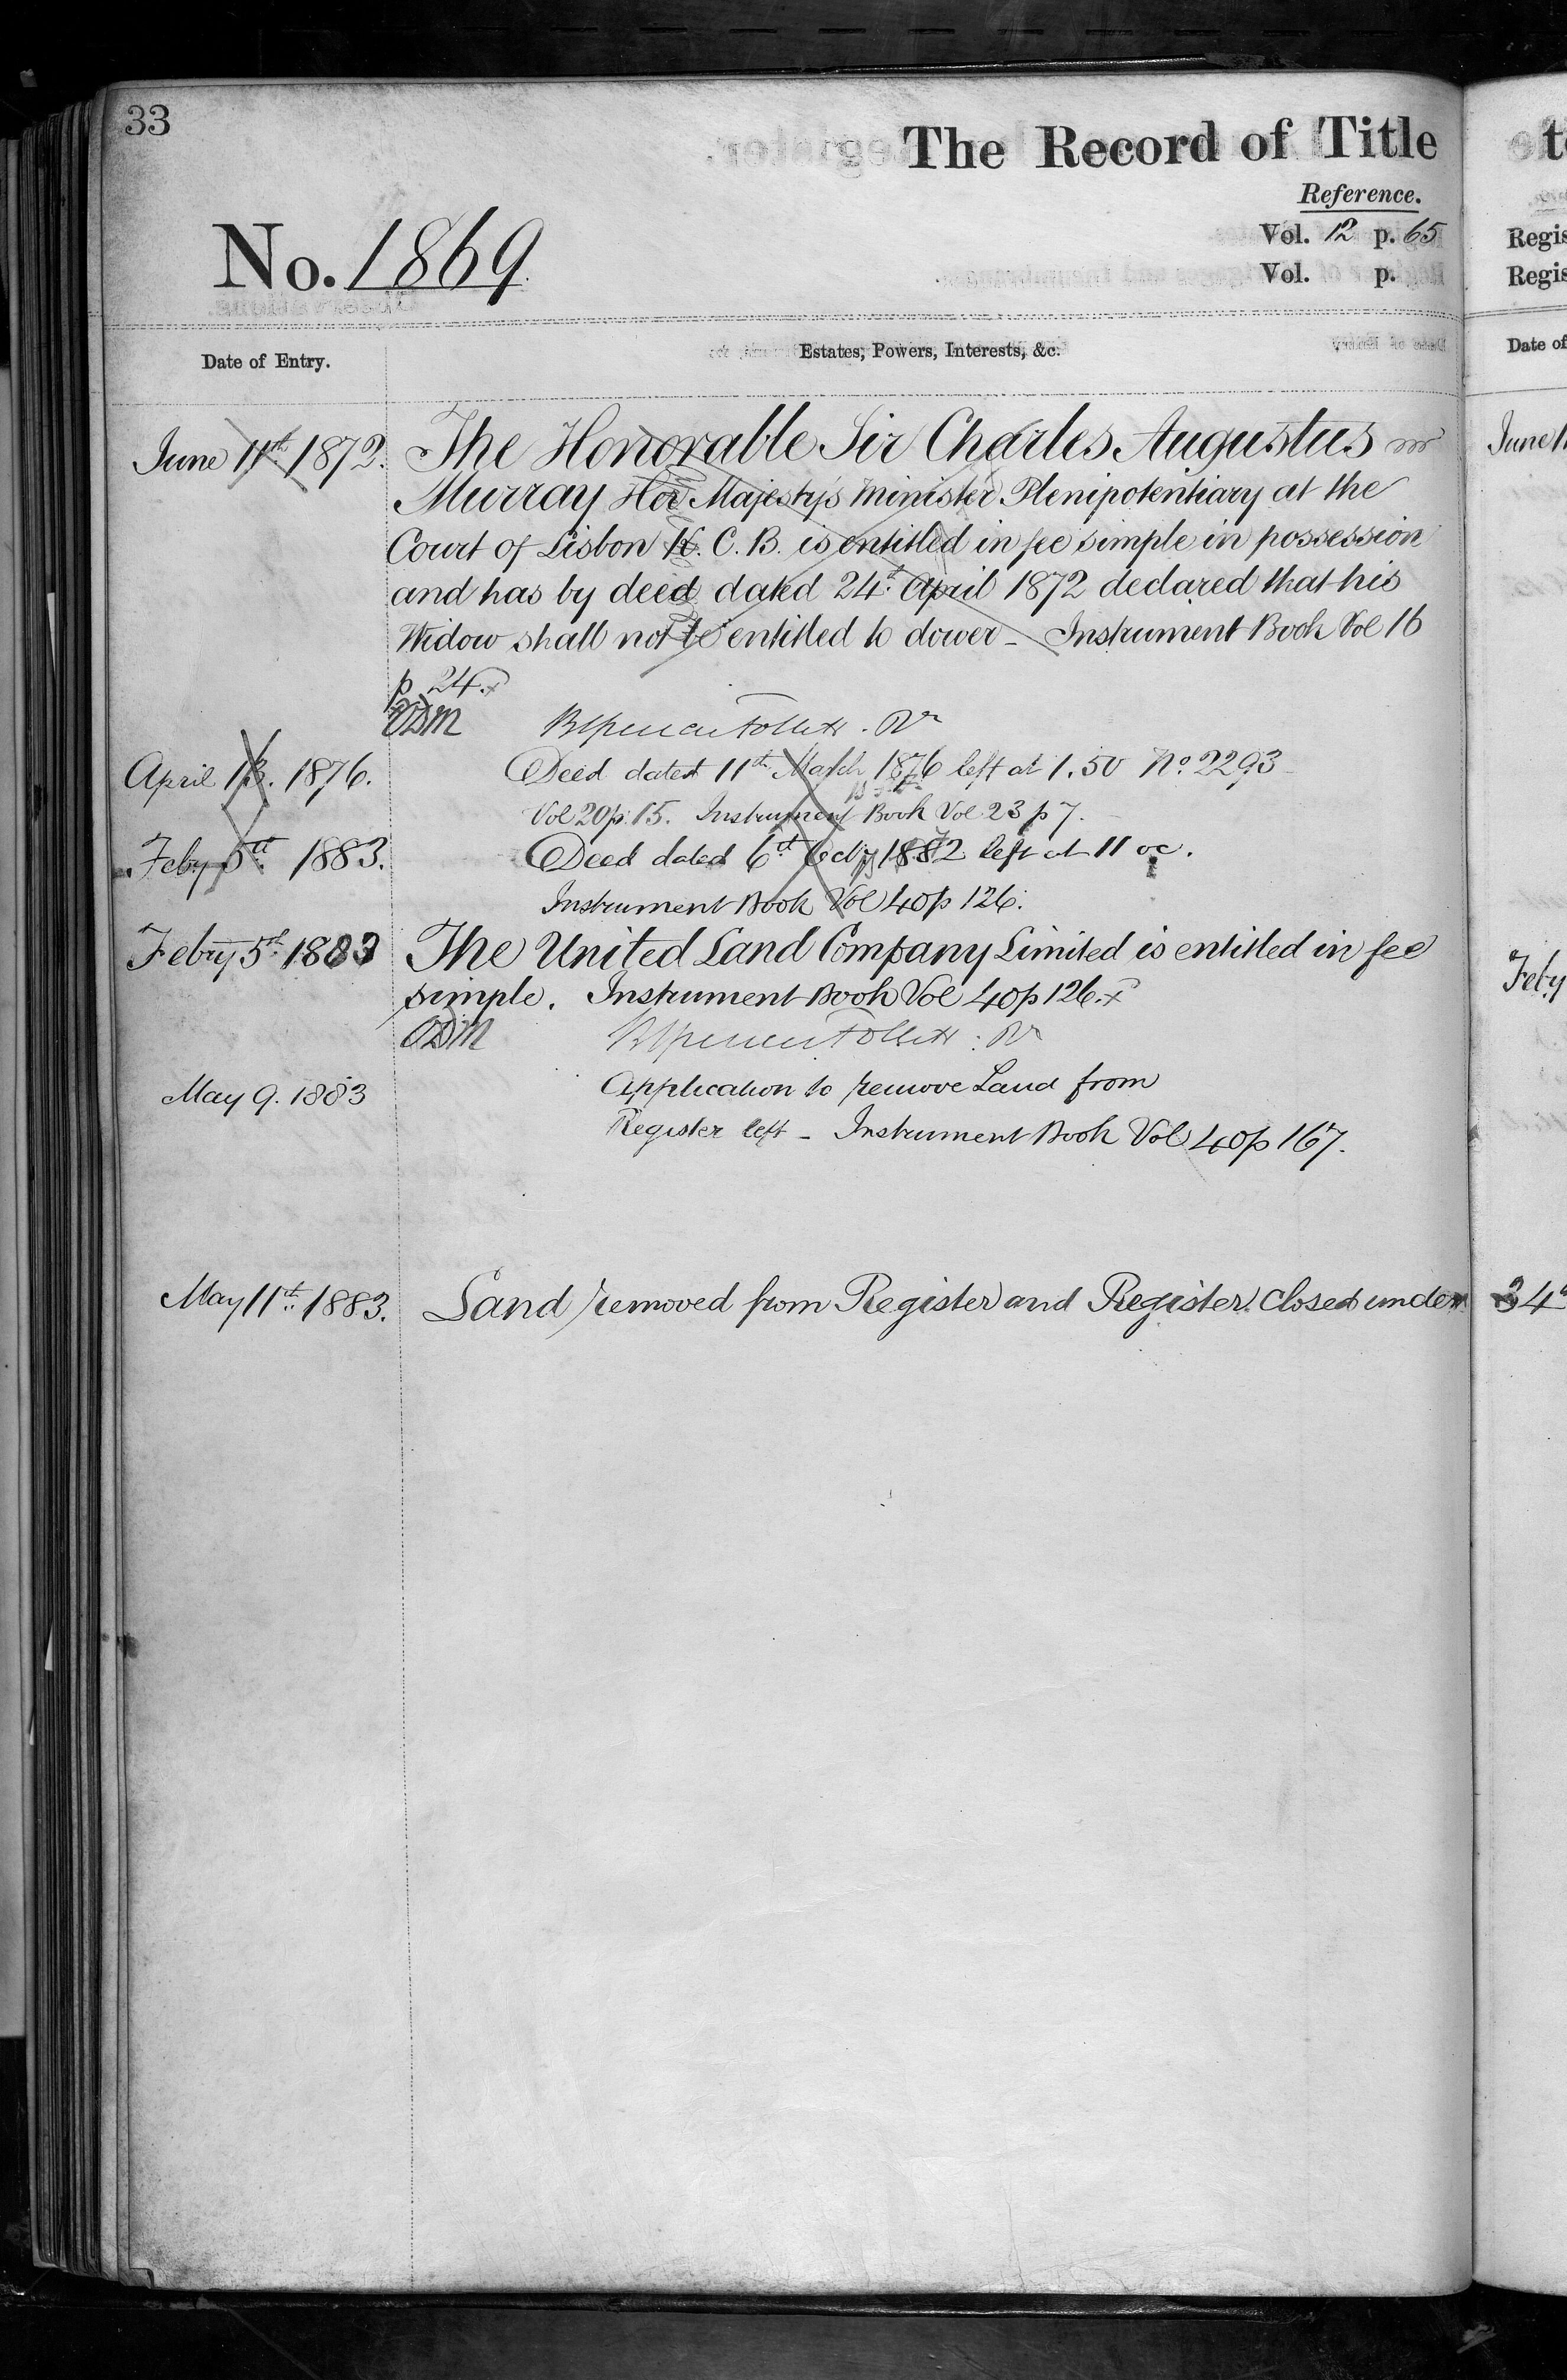 33
The Record of Title
Reference.
No. 1869.
Vol. 12 p. 65
Vol. p.
Date of Entry.
Estates, Powers, Interests, &c.
June 11th 1872. The Honorable Sir Charles Augustus
Murray Her Majesty's Minister Plenipotentiary at the
Court of Lisbon K. C. B. is entitled in fee simple in possession
and has by deed dated 24th April 1872 declared that his
Widow shall not be entitled to dower - Instrument Book Vol 16
p 24.
April 13. 1876. Deed dated 11th March 1876 left at 1.50 No. 2293
Vol 20 p. 15. Instrument Book Vol 23 p 7.
Feby 5th 1883. Deed dated 6th 1882 left at 11 oc.
Instrument Book Vol 40 p 126.
Febry 5th 1883 The United Land Company Limited is entitled in fee
simple. Instrument Book Vol 40 p 126.
May 9. 1883 Application to remove Land from
Register left - Instrument Book Vol 40 p 167.
May 11th 1883. Land removed from Register and Register closed under
Regis
Regis
Date of
June 1
Feby
34